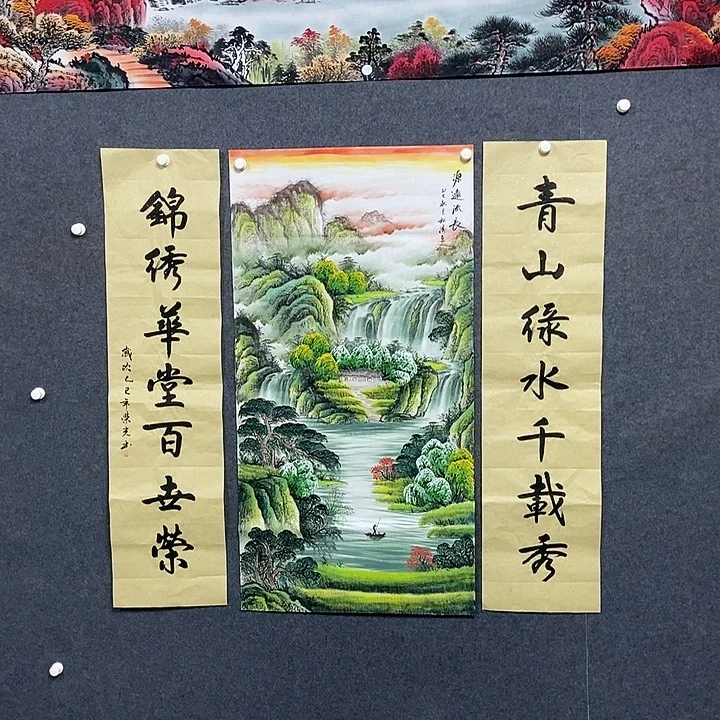 青山緑水千載秀
源遠流長
錦綉華堂百世榮
歲次乙巳年榮光書